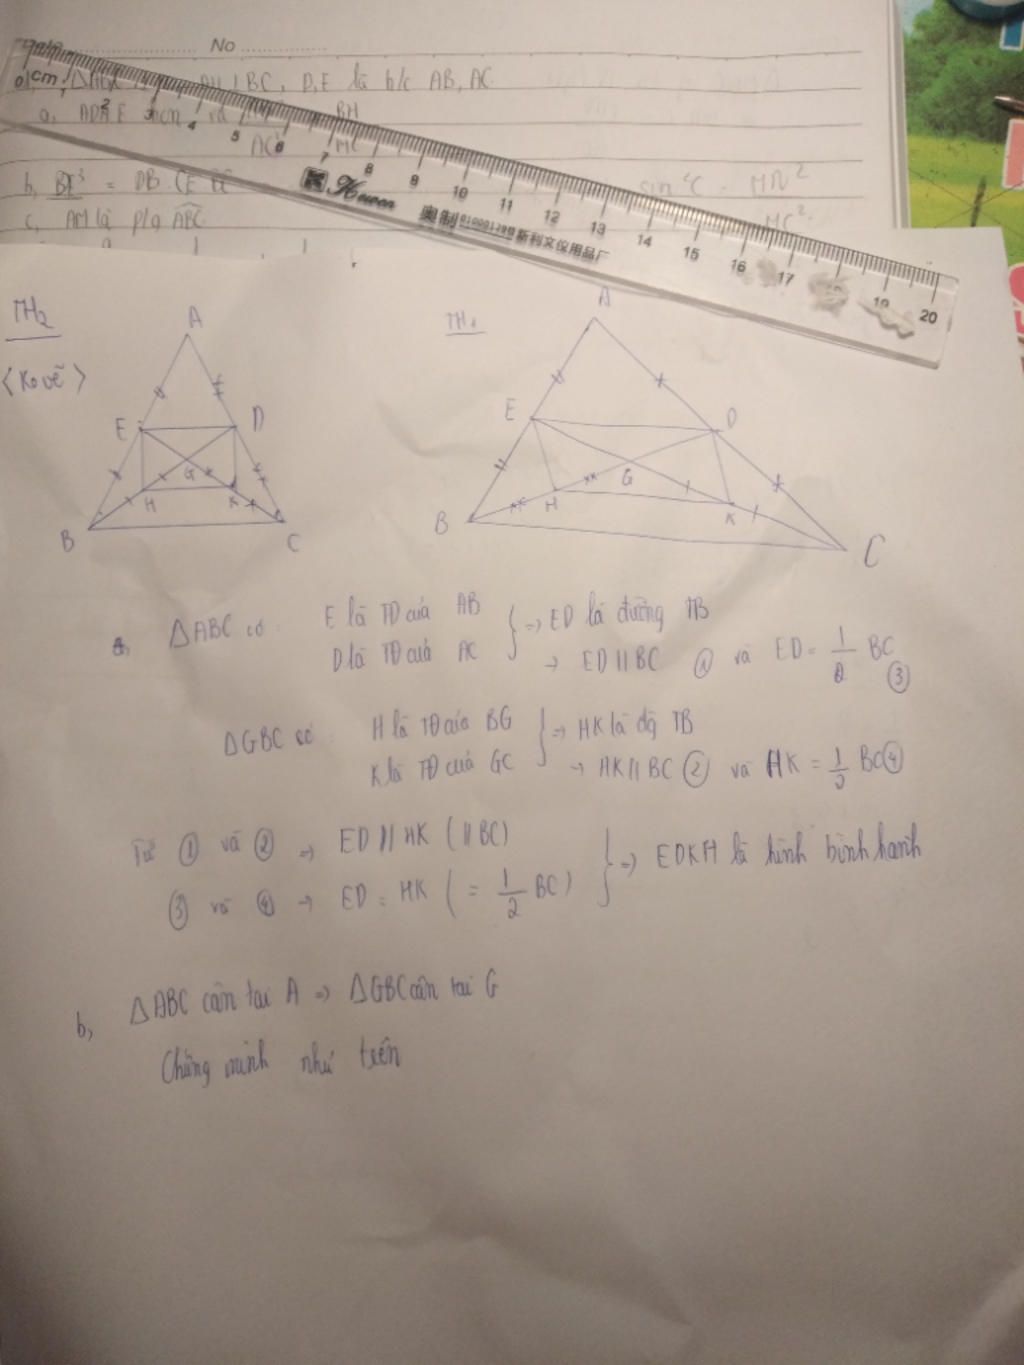 No
BC, D,E là h/c AB, AC
a, ADHE và BH
AC MC
b, = DB . CE
sin²C = MN²
MC²
c, AM là p/g ABC
cm
1 2 3 4 5 6 7 8 9 10 11 12 13 14 15 16 17 19 20
奥制 斯利文仪用品厂
TH₂
<Ko vẽ>
A
E D
G
H K
B C
TH₁
A
E D
G
H K
B C
a, ΔABC có: E là TĐ của AB } => ED là đường TB
D là TĐ của AC -> ED // BC ① và ED = 1/2 BC ③
ΔGBC có: H là TĐ của BG } => HK là đg TB
K là TĐ của GC -> HK // BC ② và HK = 1/2 BC ④
Từ ① và ② => ED // HK ( // BC) } => EDKH là hình bình hành
③ và ④ -> ED = HK ( = 1/2 BC)
b, ΔABC cân tại A => ΔGBC cân tại G
Chứng minh như trên